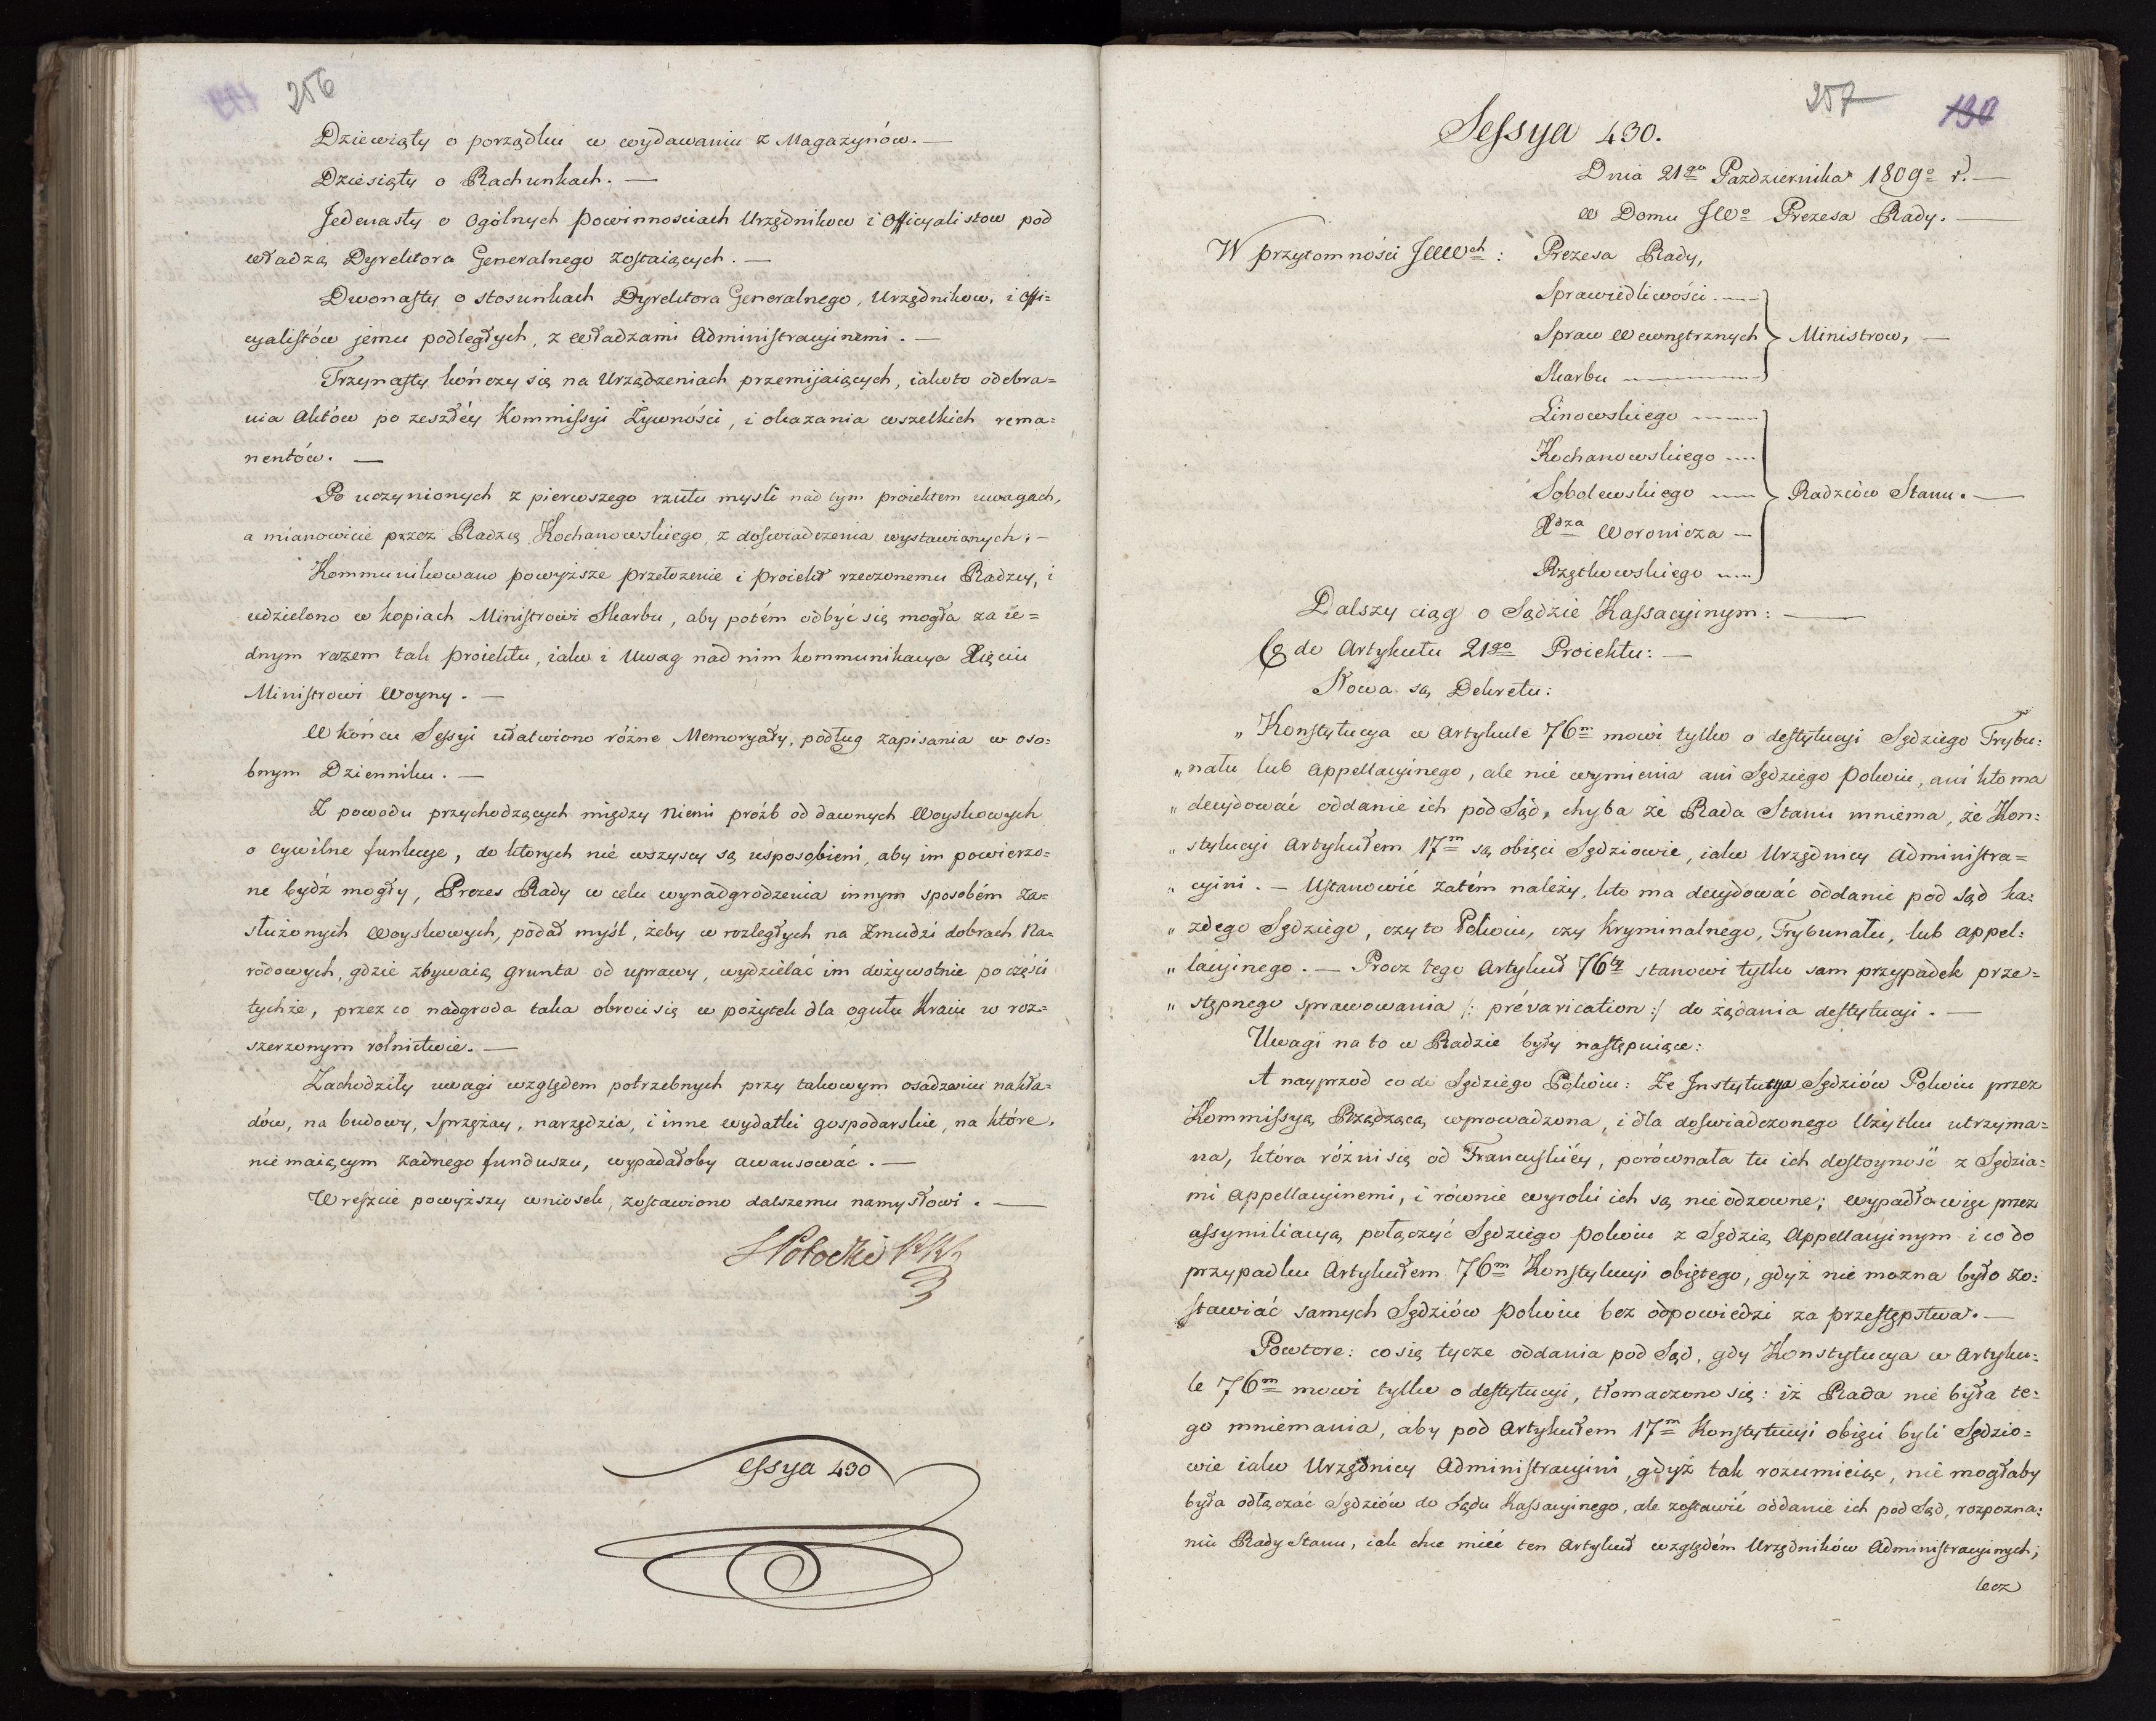 256
Dziewiąty o porządku w wydawaniu z Magazynów. —
Dziesiąty o Rachunkach. —
Jedenasty o Ogólnych powinnosciach Urzędnikow i Officyalistow pod
władzą Dyrektora Generalnego zostaiących. —
Dwonasty o stosunkach Dyrektora Generalnego, Urzędnikow, i Offi=
cyalistów jemu podległych, z Władzami Administracyinemi. —
Trzynasty kończy się na Urządzeniach przemijaiących, iakoto odebra=
nia Aktów po zeszłéy Kommissyi Żywności, i okazania wszelkich rema=
nentów. —
Po uczynionych z pierwszego rzutu mysli nad tym proiektem uwagach,
a mianowicie przez Radzcę Kochanowskiego z doswiadczenia wystawionych; —
Kommunikowano powyższe przełozenie i proiekt rzeczonemu Radzcy, i
udzielono w kopiach Ministrowi Skarbu, aby potém odbyć się mogła za ie=
dnym razem tak proiektu, iako i Uwag nad nim kommunikacya Xięciu
Ministrowi Woyny. —
W końcu Sessyi ułatwiono różne Memoryały, podług zapisania w oso=
bnym Dzienniku. —
Z powodu przychodzących między niemi próźb od dawnych Woyskowych
o cywilne funkcye, do ktorych nié wszyscy są usposobieni, aby im powierzo=
ne bydź mogły, Prezes Rady w celu wynadgrodzenia innym sposobém za=
służonych Woyskowych, podał myśl, żeby w rozległych na Zmudzi dobrach Na=
rodowych, gdzie zbywaią grunta od uprawy, wydzielać im dożywotnie po części
tychże, przez co nadgroda taka obroci się w pożytek dla ogułu Kraiu w roz=
szerzonym rolnictwie. —
Zachodziły uwagi względem potrzebnych przy takowym osadzeniu nakła=
dów, na budowy, sprzężay, narzędzia, i inne wydatki gospodarskie, na które,
nie maiącym żadnego funduszu, wypadałoby awansować. —
Wreszcie powyższy wniosek, zostawiono dalszemu namysłowi. —
SPotocki
Sessya 430
257
190
Sessya 430.
Dnia 21go Pazdziernika 1809o r. —
w Domu JWo Prezesa Rady. —
W przytomności JWWch: Prezesa Rady,
Sprawiedliwości —
Spraw Wewnętrznych } Ministrow, —
Skarbu —
Linowskiego —
Kochanowskiego —
Sobolewskiego — } Radzców Stanu. —
Xdza Woronicza —
Rzętkowskiego —
Dalszy ciąg o Sądzie Kassacyinym: —
Co do Artykułu 21go Proiektu: —
Słowa są Dekretu:
„ Konstytucya w Artykule 76m mowi tylko o destytucyi Sędziego Trybu=
„ nału lub Appellacyinego, ale nié wymienia ani Sędziego Pokoiu, ani kto ma
„ decydować oddanie ich pod Sąd, chyba że Rada Stanu mniema, że Kon=
„ stytucyi Artykułem 17m są obięci Sędziowie, iako Urzędnicy Administra=
„ cyini. — Ustanowić zatém należy, kto ma decydować oddanie pod Sąd ka=
„ zdego Sędziego, czy to Pokoiu, czy Kryminalnego, Trybunału, lub Appel=
„ lacyinego. — Procz tego Artykuł 76ty stanowi tylko sam przypadek prze=
„ stępnego sprawowania /: prévarication :/ do żądania destytucyi. —
Uwagi na to w Radzie były następuiące:
A nayprzod co do Sędziego Pokoiu: Ze Instytucya Sędziów Pokoiu przez
Kommissyą Rządzącą wprowadzona, i dla doswiadczonego Użytku utrzyma=
na, ktora różni się od Francuskiéy, porównała tu ich dostoyność z Sędzia=
mi Appellacyinemi, i równie wyroki ich są nieodzowne; wypadło więc przez
assymiliacyą połączyć Sędziego pokoiu z Sędzią Appellacyinym i co do
przypadku Artykułem 76m Konstytucyi obiętego, gdyż nie mozna było zo=
stawiać samych Sędziów pokoiu bez odpowiedzi za przestępstwa. —
Powtore: co się tycze oddania pod Sąd, gdy Konstytucya w Artyku=
le 76m mowi tylko o destytucyi, tłomaczono się: iż Rada nie była te=
go mniemania, aby pod Artykułem 17m Konstytucyi obięci byli Sędzio=
wie iako Urzędnicy Administracyini, gdyż tak rozumieiąc, nie mogłaby
była odłączać Sędziów do Sądu Kassacyinego, ale zostawić oddanie ich pod Sąd, rozpozna=
niu Rady Stanu, iak chce mieć ten Artykuł względém Urzędników Administracyinych;
lecz